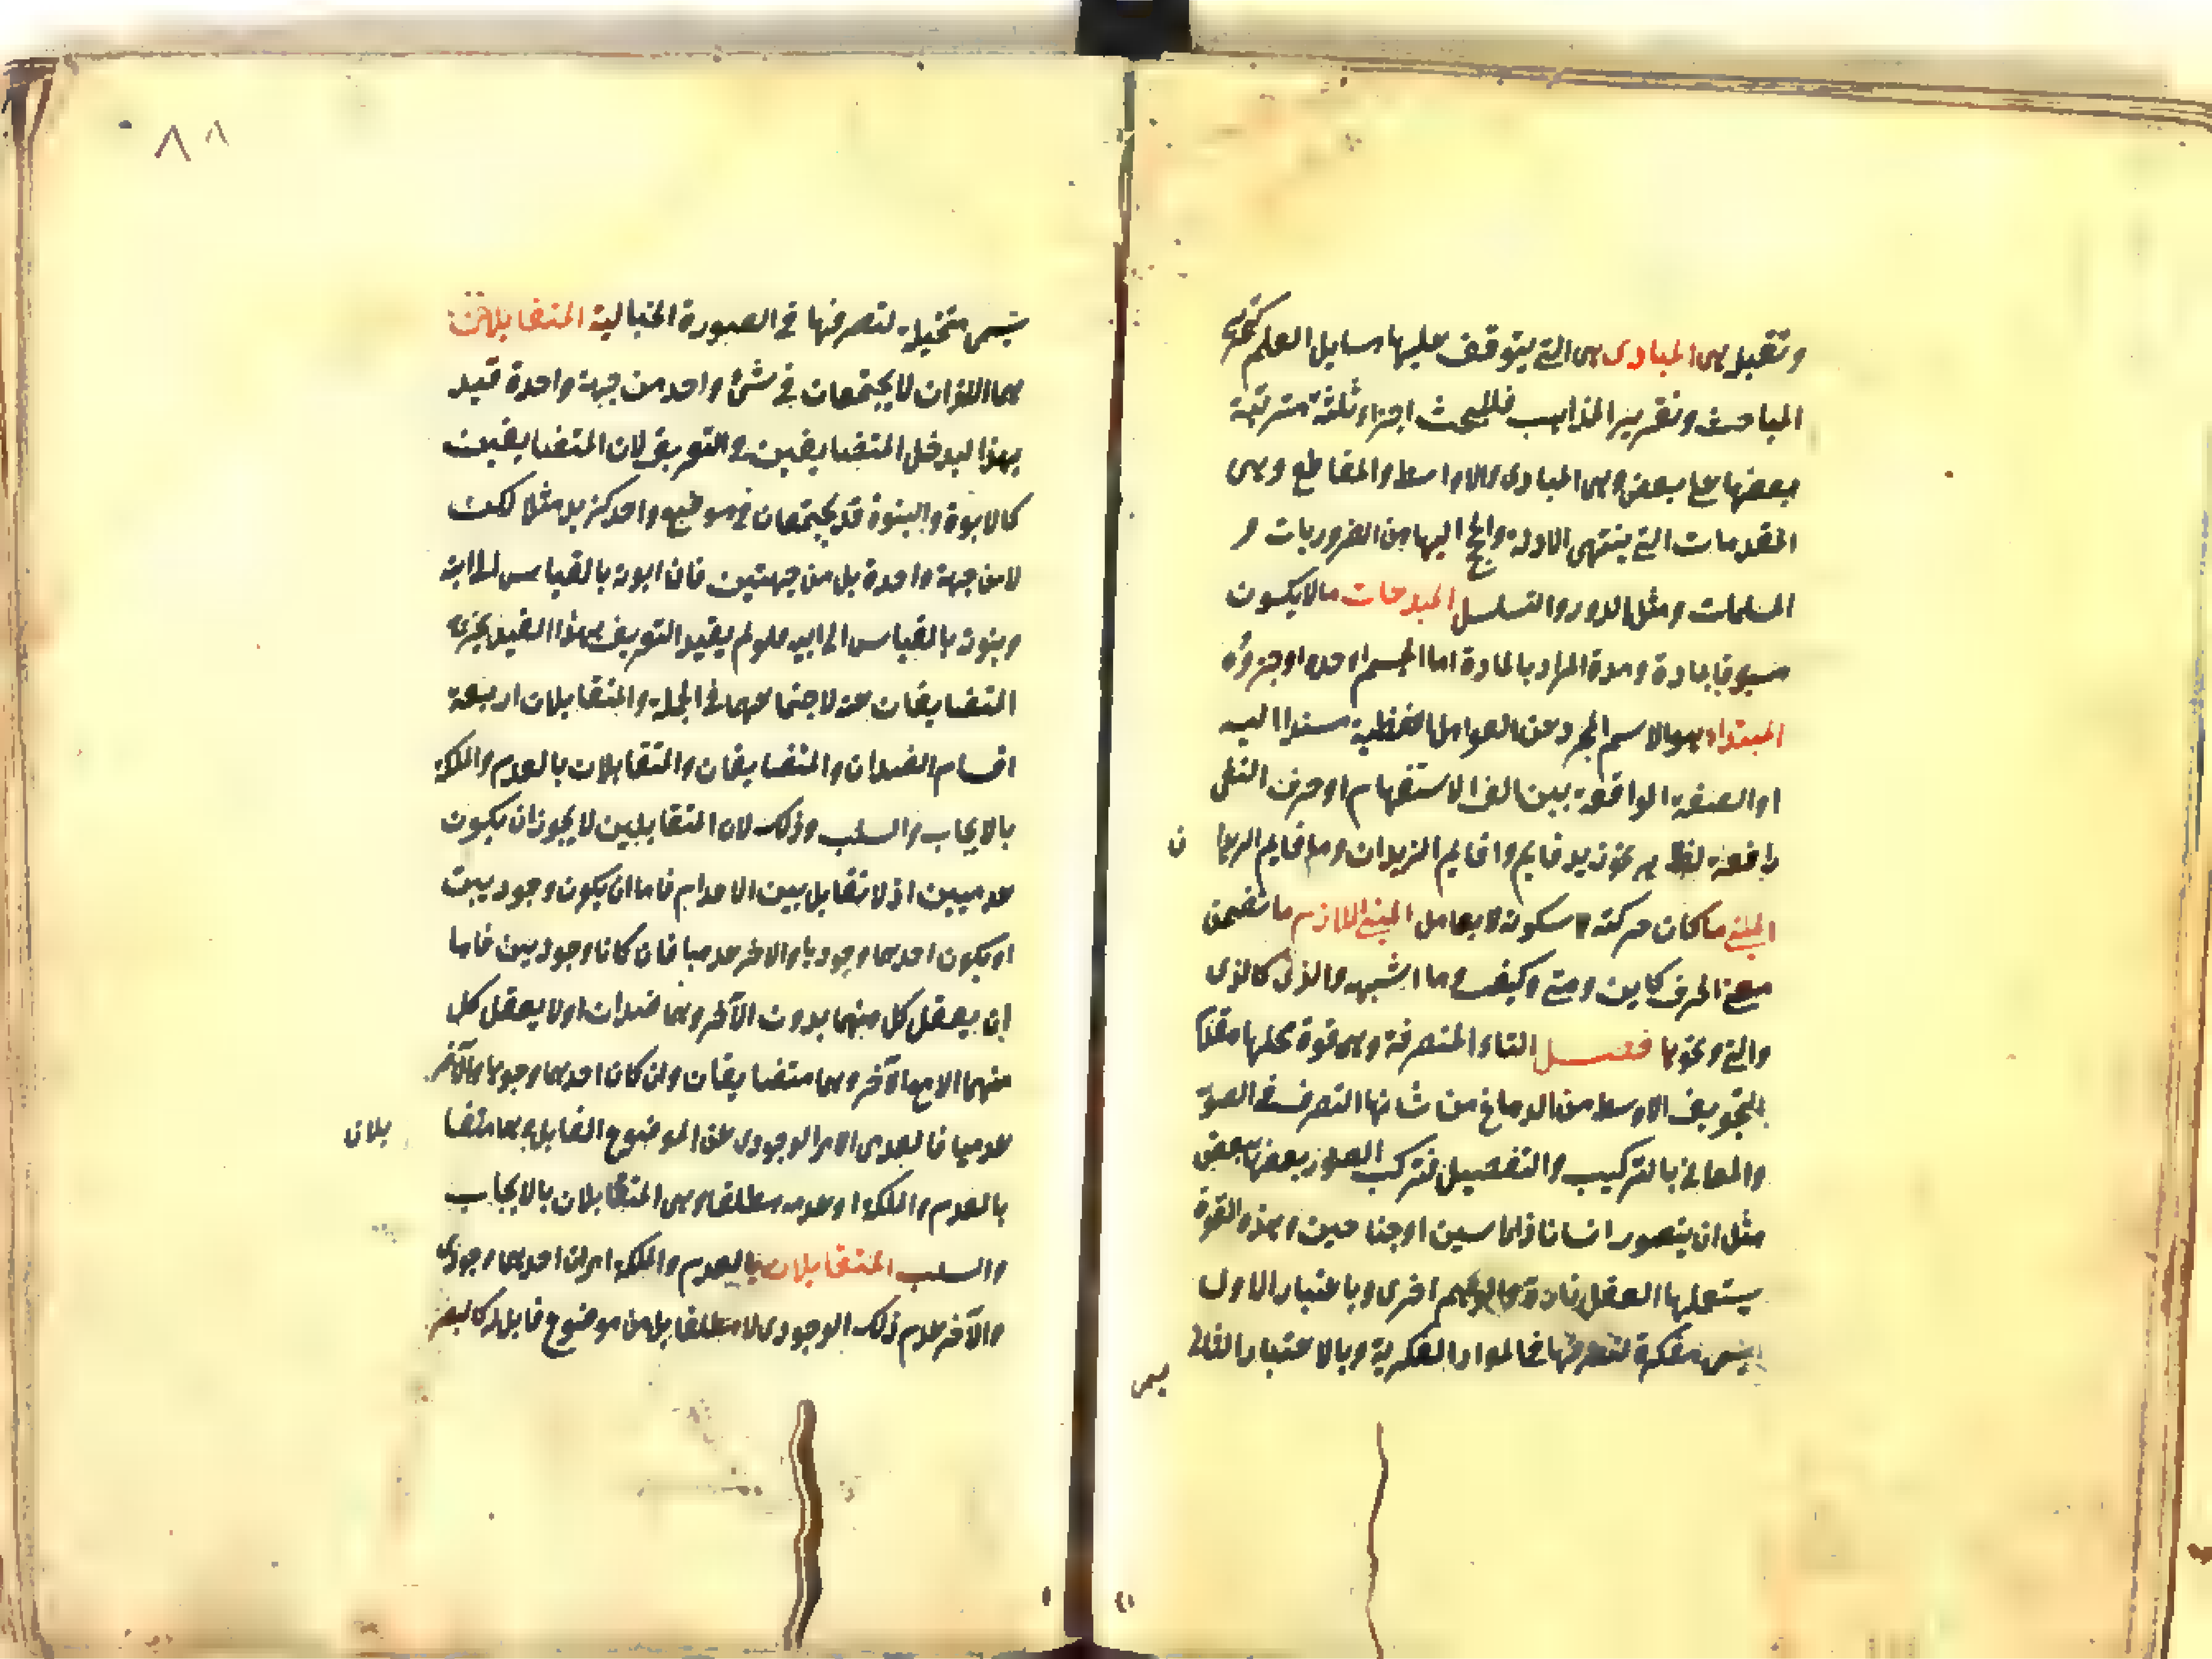 وتقبل هى المبادى هى التى يتوقف عليها مسايل العلم كتحرير
المباحث وتقرير المذاهب فللبحث اجزاء ثلثة مترتبة
بعضها على بعض وهى المبادى والاواسط والمقاطع وهى
المقدمات التى ينتهى الادلة والحجج اليها من الضروريات و
المسلمات ومثل الدور والتسلسل المبدعات مالا يكون
مسبوقا بمادة ومدة المراد بالمادة اما الجسم اوحده اوجزؤه
المبتداء هو الاسم المجرد عن العوامل اللفظية مسندا اليه
او الصفة الواقعة بين الف الاستفهام اوحرف النفى
رافعة لظاهر نحو زيد قايم واقايم الزيدان وما قايم الزيدا
ن
المبنى ما كان حركته وسكونه لا بعامل المبنى اللازم ما تضمن
معنى الحرف كاين ومتى وكيف وما اشبهه والذى كالذى
والتى ونحوها فصل التاء المتصرفة وهى قوة محلها مقدم
التجويف الاوسط من الدماغ من شانها التصرف فى الصور
والمعانى بالتركيب والتفصيل فتركب الصور بعضها ببعض
مثل ان يتصور انسانا ذا راسين او جناحين وهذه القوة
يستعملها العقل تارة والوهم اخرى وباعتبار الاول
يسمى مفكرة لتصرفها فى المواد الفكرية وبالاعتبار الثانى
يسمى
يسمى متخيلة لتصرفها فى الصورة الخيالية المتقابلان
هما اللذان لا يجتمعان فى شئ واحد من جهة واحدة قيد
بهذا ليدخل المتضايفين فى التعريف لان المتضايفين
كالابوة والبنوة قد يجتمعان فى موضع واحد كزيد مثلا لكن
لا من جهة واحدة بل من جهتين فان ابوته بالقياس الى ابنه
وبنوته بالقياس الى ابيه فلو لم يقيد التعريف بهذا القيد لخرج
المتضايفان عنه لاجتماعهما فى الجملة والمتقابلان اربعة
اقسام الضدان والمتضايفان والمتقابلان بالعدم والملكة
بالايجاب والسلب وذلك لان المتقابلين لا يجوز ان يكون
عدميين اذ لا تقابل بين الاعدام فاما ان يكون وجوديين
او يكون احدهما وجوديا والاخر عدميا فان كانا وجوديين فاما
ان يعقل كل منهما بدون الآخر وهما ضدان اولا يعقل كل
منهما الا مع الآخر وهما متضايفان وان كان احدهما وجوديا والآخر
عدميا فالعدمى الامر الوجودى عن الموضوع القابل وهما متقا
بلان
بالعدم والملكة او عدمه مطلقا وهى المتقابلان بالايجاب
والسلب المتقابلان بالعدم والملكة امران احدهما وجودى
والآخر عدم ذلك الوجودى لا مطلقا بل من موضوع قابل له كالبصر